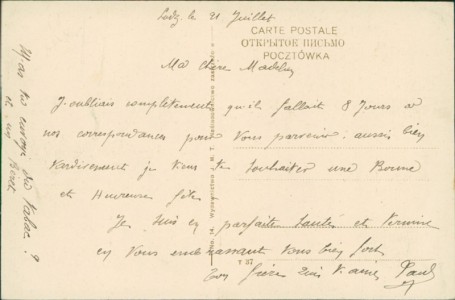 Lodz, le 21 Juillet
CARTE POSTALE
ОТКРЫТОЕ ПИСЬМО
POCZTÓWKA
Ma chère
J'oubliais complètement qu'il fallait 8 Jours a
nos correspondances pour Vous parvenir. aussi bien
tardivement je viens te souhaiter une Bonne
et Heureuse fête
Je suis en parfaite santé et termine
en Vous embrassant tous bien fort
Ton frère qui t'aime Paul
As tu envoyé du tabac ?
et un